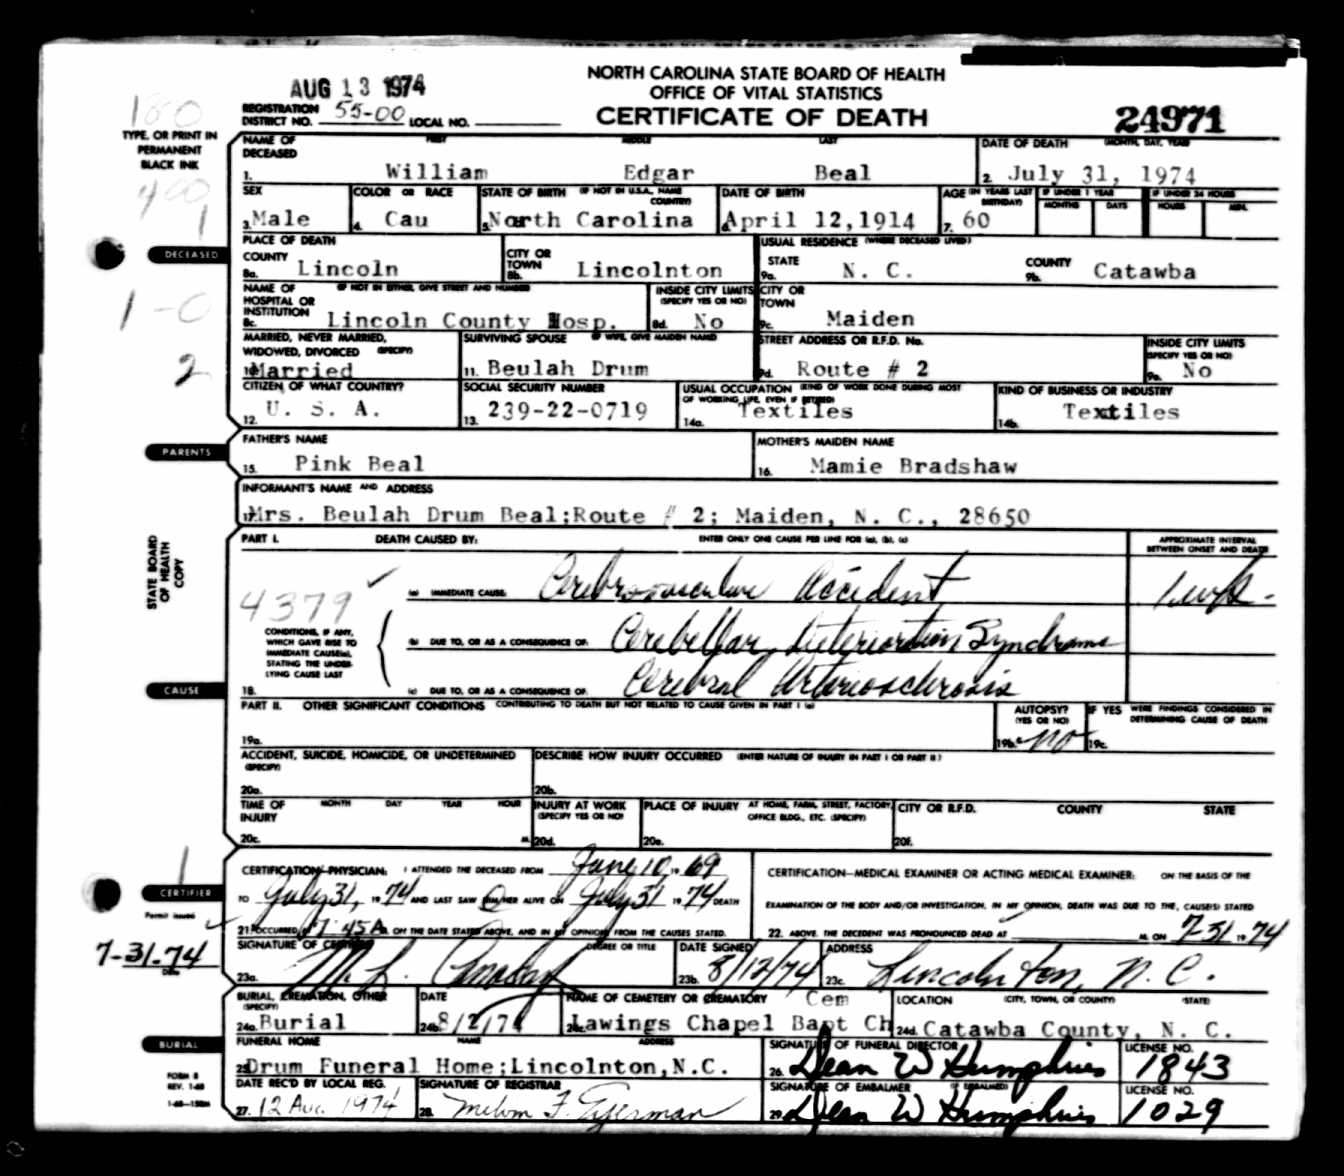 AUG 13 1974
NORTH CAROLINA STATE BOARD OF HEALTH
OFFICE OF VITAL STATISTICS
CERTIFICATE OF DEATH
24971
REGISTRATION DISTRICT NO. 55-00 LOCAL NO.
100
TYPE, OR PRINT IN
PERMANENT
BLACK INK
NAME OF DECEASED FIRST MIDDLE LAST
1. William Edgar Beal
DATE OF DEATH (MONTH, DAY, YEAR)
2. July 31, 1974
SEX
3. Male
COLOR OR RACE
4. Cau
STATE OF BIRTH (IF NOT IN U.S.A., NAME COUNTRY)
5. North Carolina
DATE OF BIRTH
6. April 12,1914
AGE (IN YEARS LAST BIRTHDAY)
7. 60
IF UNDER 1 YEAR
MONTHS DAYS
IF UNDER 24 HOURS
HOURS MIN.
DECEASED
PLACE OF DEATH
COUNTY
8a. Lincoln
CITY OR TOWN
8b. Lincolnton
USUAL RESIDENCE (WHERE DECEASED LIVED)
STATE
9a. N. C.
COUNTY
9b. Catawba
1-0
NAME OF HOSPITAL OR INSTITUTION (IF NOT IN EITHER, GIVE STREET AND NUMBER)
8c. Lincoln County Hosp.
INSIDE CITY LIMITS (SPECIFY YES OR NO)
8d. No
CITY OR TOWN
9c. Maiden
2
MARRIED, NEVER MARRIED, WIDOWED, DIVORCED (SPECIFY)
10. Married
SURVIVING SPOUSE (IF WIFE, GIVE MAIDEN NAME)
11. Beulah Drum
STREET ADDRESS OR R.F.D. No.
9d. Route # 2
INSIDE CITY LIMITS (SPECIFY YES OR NO)
9e. No
CITIZEN OF WHAT COUNTRY?
12. U. S. A.
SOCIAL SECURITY NUMBER
13. 239-22-0719
USUAL OCCUPATION (KIND OF WORK DONE DURING MOST OF WORKING LIFE, EVEN IF RETIRED)
14a. Textiles
KIND OF BUSINESS OR INDUSTRY
14b. Textiles
PARENTS
FATHER'S NAME
15. Pink Beal
MOTHER'S MAIDEN NAME
16. Mamie Bradshaw
INFORMANT'S NAME AND ADDRESS
17. Mrs. Beulah Drum Beal;Route # 2; Maiden, N. C., 28650
STATE BOARD
OF HEALTH
COPY
PART I. DEATH CAUSED BY: ENTER ONLY ONE CAUSE PER LINE FOR (a), (b), (c)
APPROXIMATE INTERVAL BETWEEN ONSET AND DEATH
4379
(a) IMMEDIATE CAUSE: Cerebrovascular Accident
CONDITIONS, IF ANY,
WHICH GAVE RISE TO
IMMEDIATE CAUSE(a),
STATING THE UNDER-
LYING CAUSE LAST
(b) DUE TO, OR AS A CONSEQUENCE OF: Cerebellar Deteriortion Syndrome
CAUSE
18. (c) DUE TO, OR AS A CONSEQUENCE OF: Cerebral Arteriosclerosis
PART II. OTHER SIGNIFICANT CONDITIONS CONTRIBUTING TO DEATH BUT NOT RELATED TO CAUSE GIVEN IN PART I (a)
19a.
AUTOPSY? (YES OR NO)
19b. no
IF YES WERE FINDINGS CONSIDERED IN DETERMINING CAUSE OF DEATH
19c.
ACCIDENT, SUICIDE, HOMICIDE, OR UNDETERMINED (SPECIFY)
20a.
DESCRIBE HOW INJURY OCCURRED (ENTER NATURE OF INJURY IN PART I OR PART II)
20b.
TIME OF INJURY MONTH DAY YEAR HOUR
20c. M.
INJURY AT WORK (SPECIFY YES OR NO)
20d.
PLACE OF INJURY AT HOME, FARM, STREET, FACTORY, OFFICE BLDG., ETC. (SPECIFY)
20e.
CITY OR R.F.D. COUNTY STATE
20f.
1
CERTIFIER
CERTIFICATION-PHYSICIAN: I ATTENDED THE DECEASED FROM June 10, 1969
TO July 31, 1974 AND LAST SAW HIM/HER ALIVE ON July 31 1974 DEATH
21. OCCURRED 7:45A M. ON THE DATE STATED ABOVE, AND IN MY OPINION FROM THE CAUSES STATED.
CERTIFICATION-MEDICAL EXAMINER OR ACTING MEDICAL EXAMINER: ON THE BASIS OF THE
EXAMINATION OF THE BODY AND/OR INVESTIGATION, IN MY OPINION, DEATH WAS DUE TO THE, CAUSE(S) STATED
22. ABOVE. THE DECEDENT WAS PRONOUNCED DEAD AT M. ON 7-31 1974
Permit issued
7-31-74
Date
SIGNATURE OF CERTIFIER DEGREE OR TITLE
23a. M. L.
DATE SIGNED
23b. 8/12/74
ADDRESS
23c. Lincolnton, N. C.
BURIAL, CREMATION, OTHER (SPECIFY)
24a. Burial
DATE
24b. 8/2/74
NAME OF CEMETERY OR CREMATORY
24c. Lawings Chapel Bapt Ch Cem
LOCATION (CITY, TOWN, OR COUNTY) (STATE)
24d. Catawba County, N. C.
BURIAL
FUNERAL HOME NAME ADDRESS
25. Drum Funeral Home;Lincolnton,N.C.
SIGNATURE OF FUNERAL DIRECTOR
26. Dean W Humphries
LICENSE NO.
1843
FORM 8
REV. 1-68
DATE REC'D BY LOCAL REG.
27. 12 Aug 1974
SIGNATURE OF REGISTRAR
28. Melvin F.
SIGNATURE OF EMBALMER (IF EMBALMED)
29. Dean W Humphries
LICENSE NO.
1029